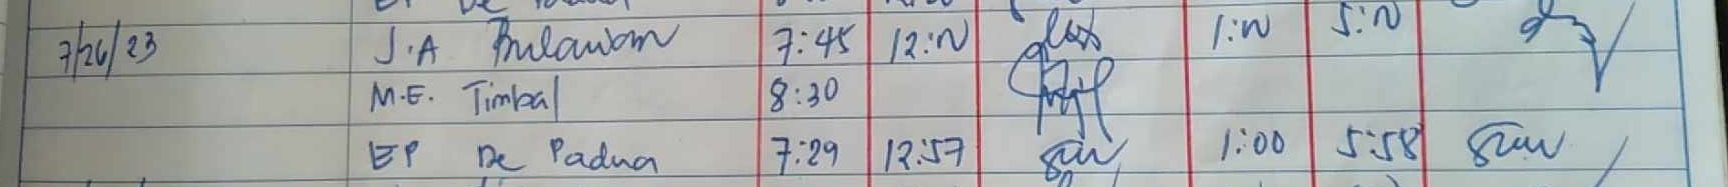 7/26/23 J.A Bulawan 7:45 12:N 1:N 5:N
M.E. Timbal 8:30
EP De Padua 7:29 12:57 1:00 5:58